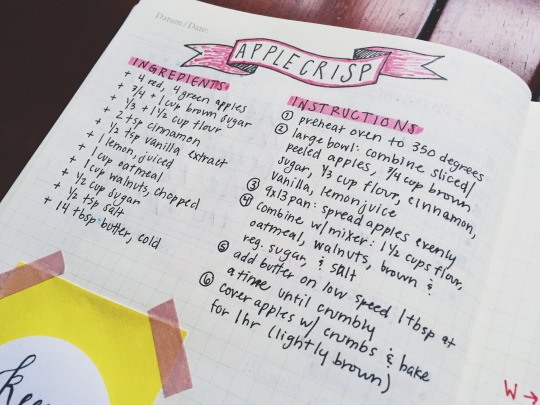 Datum / Date:
APPLE CRISP
INGREDIENTS
+ 4 red, 4 green apples
+ 3/4 + 1 cup brown sugar
+ 1/3 + 1 1/2 cup flour
+ 2 tsp cinnamon
+ 1/2 tsp vanilla extract
+ 1 lemon, juiced
+ 1 cup oatmeal
+ 1 cup walnuts, chopped
+ 1/2 cup sugar
+ 1/2 tsp salt
+ 14 tbsp butter, cold
INSTRUCTIONS
① preheat oven to 350 degrees
② large bowl: combine sliced/
peeled apples, 3/4 cup brown
sugar, 1/3 cup flour, cinnamon,
vanilla, lemon juice
③ 9x13 pan: spread apples evenly
④ combine w/ mixer: 1 1/2 cups flour,
oatmeal, walnuts, brown &
reg. sugar, & salt
⑤ add butter on low speed 1 tbsp at
a time until crumbly
⑥ cover apples w/ crumbs & bake
for 1hr (lightly brown)
W →